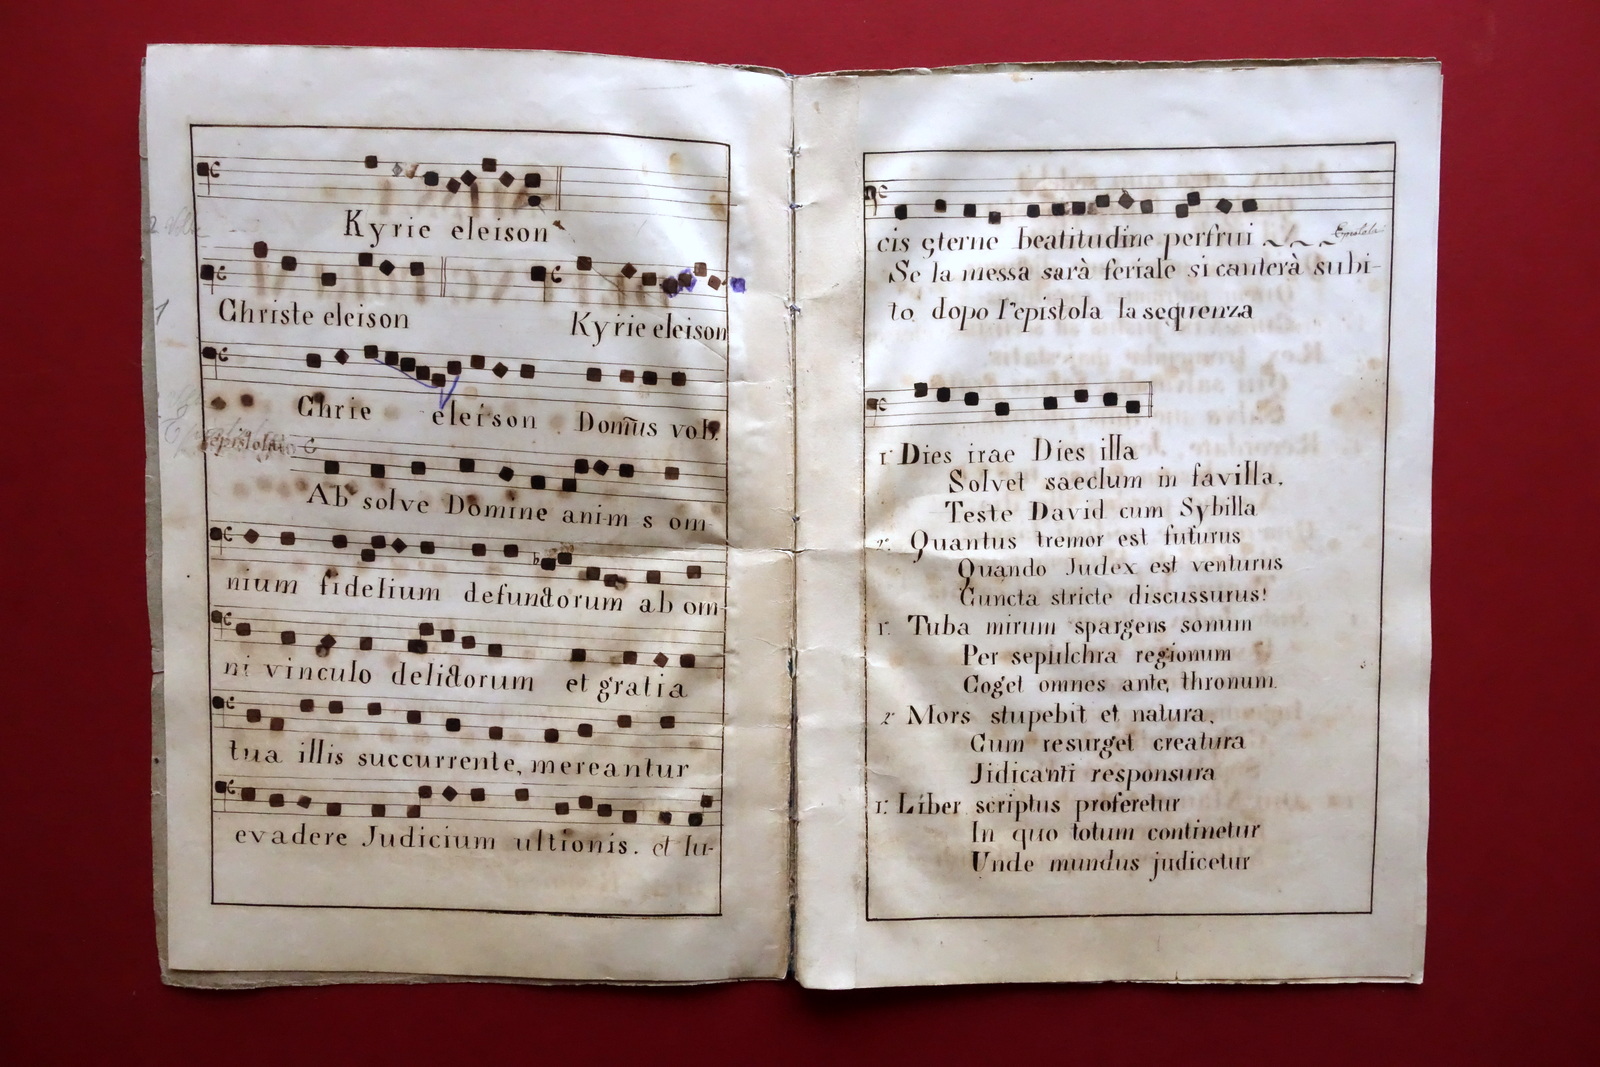 Kyrie eleison
Christe eleison Kyrie eleison
Chrie eleison Domus vob.
epistola
Ab solve Domine anim s om-
nium fidelium defunctorum ab om-
ni vinculo delictorum et gratia
tua illis succurrente, mereantur
evadere Judicium ultionis. et lu-
cis ęterne beatitudine perfrui Epistola
Se la messa sarà feriale si canterà subi-
to dopo l'epistola la sequenza
1 Dies irae Dies illa
Solvet saeclum in favilla.
Teste David cum Sybilla
2. Quantus tremor est futurus
Quando Judex est venturus
Cuncta stricte discussurus!
1. Tuba mirum spargens sonum
Per sepulchra regionum
Coget omnes ante, thronum.
2 Mors stupebit et natura,
Cum resurget creatura
Jidicanti responsura
1. Liber scriptus proferetur
In quo totum continetur
Unde mundus judicetur